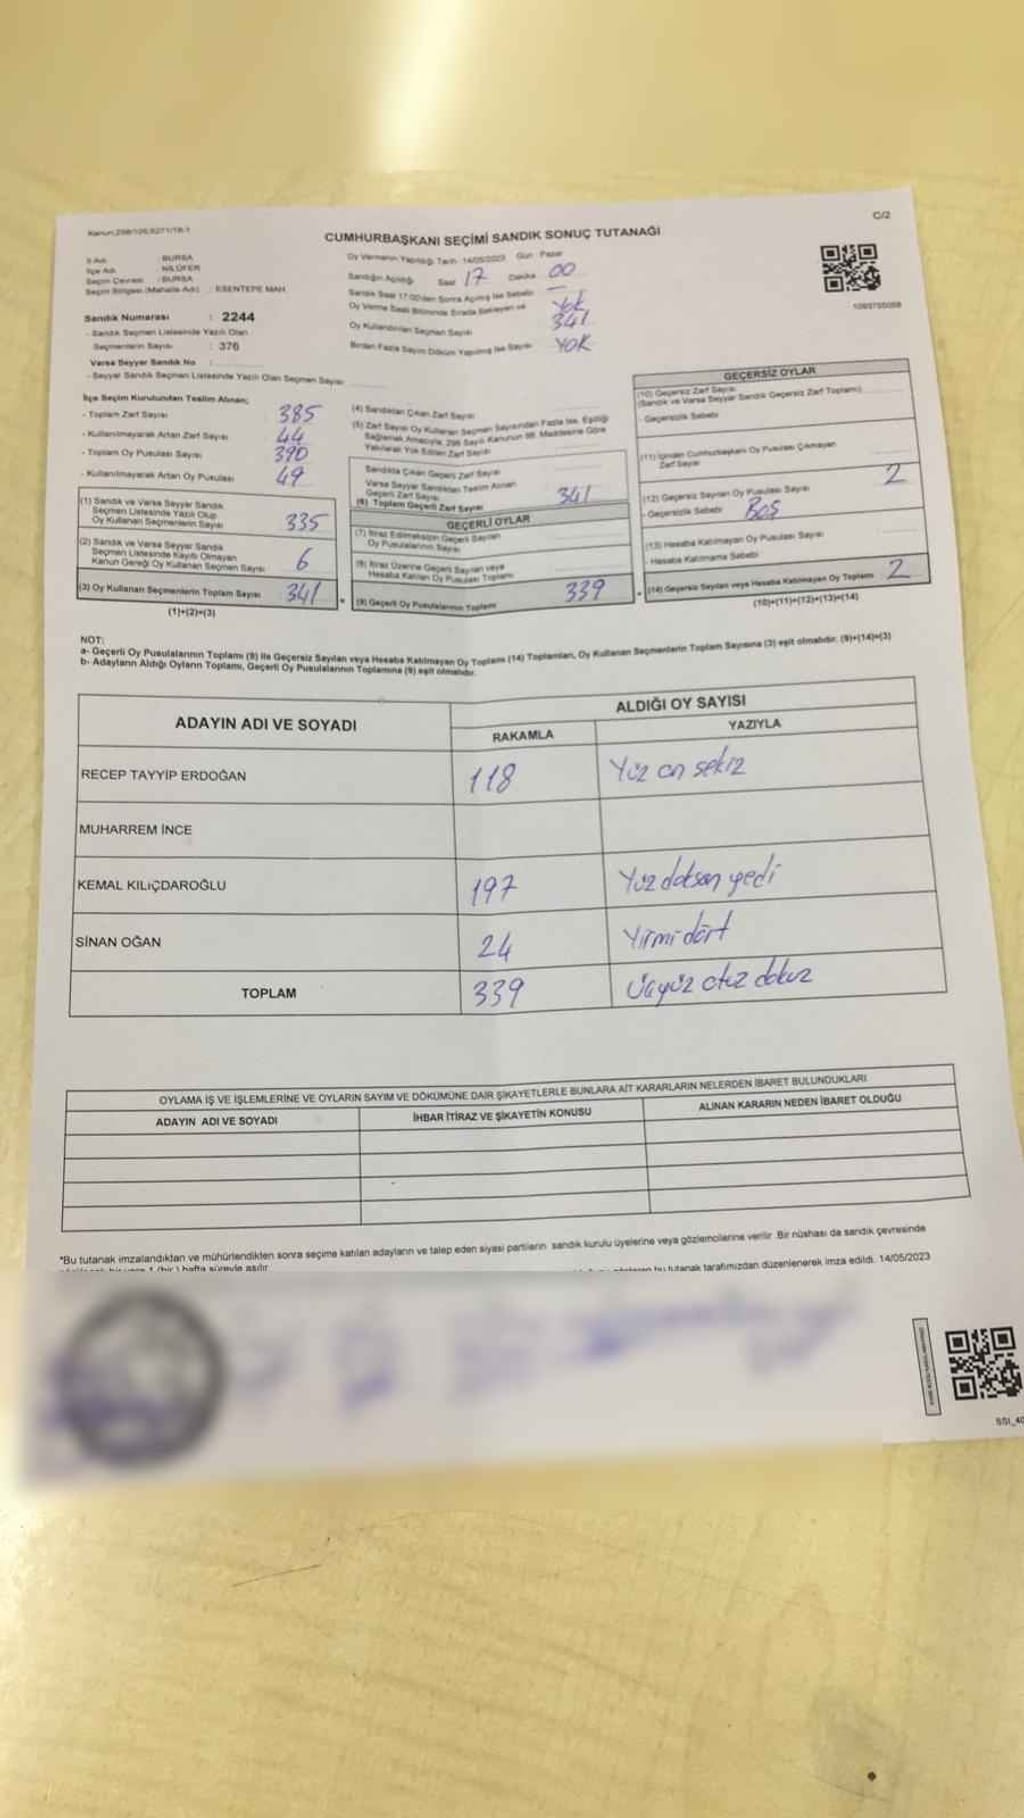 C/2
Kanun:298/105,6271/18-1
CUMHURBAŞKANI SEÇİMİ SANDIK SONUÇ TUTANAĞI
İl Adı : BURSA
İlçe Adı : NİLÜFER
Seçim Çevresi : BURSA
Seçim Bölgesi (Mahalle Adı) : ESENTEPE MAH.
Sandık Numarası : 2244
- Sandık Seçmen Listesinde Yazılı Olan
Seçmenlerin Sayısı : 376
Varsa Seyyar Sandık No :
- Seyyar Sandık Seçmen Listesinde Yazılı Olan Seçmen Sayısı
Oy Vermenin Yapıldığı Tarih 14/05/2023 Gün Pazar
Sandığın Açıldığı Saat 17 Dakika 00
Sandık Saat 17:00'den Sonra Açılmış İse Sebebi —
Oy Verme Saati Bitiminde Sırada Bekleyen ve Yok
Oy Kullandırılan Seçmen Sayısı 341
Birden Fazla Sayım Döküm Yapılmış İse Sayısı YOK
İlçe Seçim Kurulundan Teslim Alınan;
- Toplam Zarf Sayısı 385
- Kullanılmayarak Artan Zarf Sayısı 44
- Toplam Oy Pusulası Sayısı 390
- Kullanılmayarak Artan Oy Pusulası 49
(1) Sandık ve Varsa Seyyar Sandık
Seçmen Listesinde Yazılı Olup
Oy Kullanan Seçmenlerin Sayısı 335
(2) Sandık ve Varsa Seyyar Sandık
Seçmen Listesinde Kayıtlı Olmayan
Kanun Gereği Oy Kullanan Seçmen Sayısı 6
(3) Oy Kullanan Seçmenlerin Toplam Sayısı 341
(1)+(2)=(3)
(4) Sandıktan Çıkan Zarf Sayısı
(5) Zarf Sayısı Oy Kullanan Seçmen Sayısından Fazla İse, Eşitliği
Sağlamak Amacıyla, 298 Sayılı Kanunun 98. Maddesine Göre
Yakılarak Yok Edilen Zarf Sayısı
Sandıkta Çıkan Geçerli Zarf Sayısı
Varsa Seyyar Sandıktan Teslim Alınan
Geçerli Zarf Sayısı
(6) Toplam Geçerli Zarf Sayısı 341
GEÇERLİ OYLAR
(7) İtiraz Edilmeksizin Geçerli Sayılan
Oy Pusulalarının Sayısı
(8) İtiraz Üzerine Geçerli Sayılan veya
Hesaba Katılan Oy Pusulası Toplamı
(9) Geçerli Oy Pusulalarının Toplamı 339
GEÇERSİZ OYLAR
(10) Geçersiz Zarf Sayısı
(Sandık ve Varsa Seyyar Sandık Geçersiz Zarf Toplamı)
- Geçersizlik Sebebi
(11) İçinden Cumhurbaşkanı Oy Pusulası Çıkmayan
Zarf Sayısı
(12) Geçersiz Sayılan Oy Pusulası Sayısı 2
- Geçersizlik Sebebi Boş
(13) Hesaba Katılmayan Oy Pusulası Sayısı
- Hesaba Katılmama Sebebi
(14) Geçersiz Sayılan veya Hesaba Katılmayan Oy Toplamı 2
(10)+(11)+(12)+(13)=(14)
NOT:
a- Geçerli Oy Pusulalarının Toplamı (9) ile Geçersiz Sayılan veya Hesaba Katılmayan Oy Toplamı (14) Toplamları, Oy Kullanan Seçmenlerin Toplam Sayısına (3) eşit olmalıdır. (9)+(14)=(3)
b- Adayların Aldığı Oyların Toplamı, Geçerli Oy Pusulalarının Toplamına (9) eşit olmalıdır.
ADAYIN ADI VE SOYADI
ALDIĞI OY SAYISI
RAKAMLA YAZIYLA
RECEP TAYYİP ERDOĞAN 118 Yüz on sekiz
MUHARREM İNCE
KEMAL KILIÇDAROĞLU 197 Yüz doksan yedi
SİNAN OĞAN 24 Yirmi dört
TOPLAM 339 Üçyüz otuz dokuz
OYLAMA İŞ VE İŞLEMLERİNE VE OYLARIN SAYIM VE DÖKÜMÜNE DAİR ŞİKAYETLERLE BUNLARA AİT KARARLARIN NELERDEN İBARET BULUNDUKLARI
ADAYIN ADI VE SOYADI İHBAR İTİRAZ VE ŞİKAYETİN KONUSU ALINAN KARARIN NEDEN İBARET OLDUĞU
*Bu tutanak imzalandıktan ve mühürlendikten sonra seçime katılan adayların ve talep eden siyasi partilerin sandık kurulu üyelerine veya gözlemcilerine verilir. Bir nüshası da sandık çevresinde
1 (bir) hafta süreyle asılır.
bu tutanak tarafımızdan düzenlenerek imza edildi. 14/05/2023